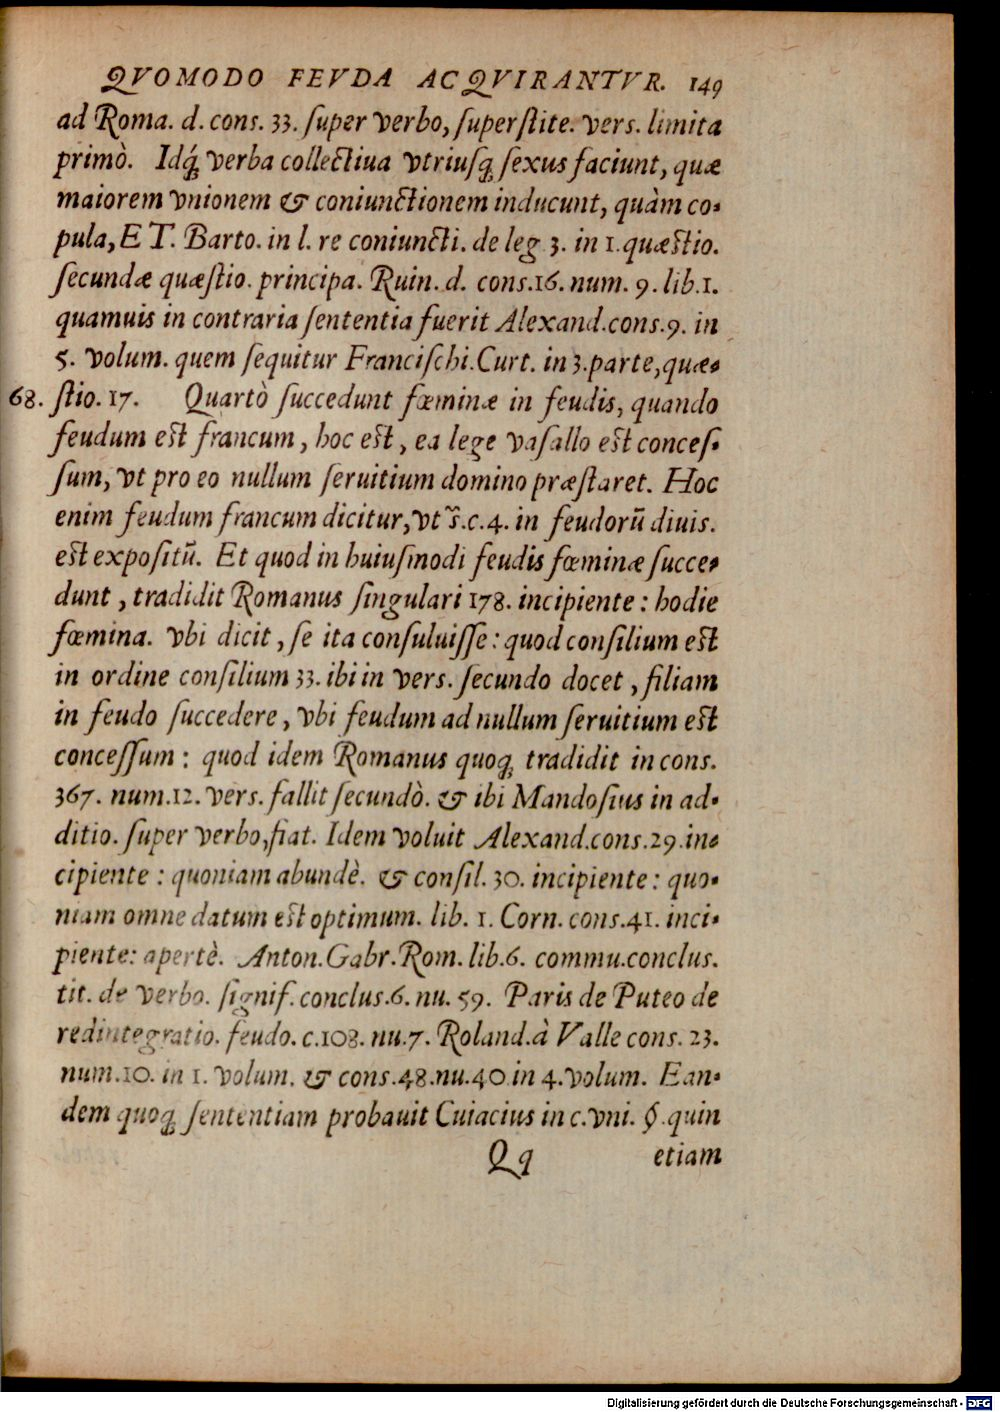 QVOMODO FEVDA ACQVIRANTVR. 149
ad Roma. d. cons. 33. ſuper verbo, ſuperſtite. verſ. limita
primò. Idq́ꝫ verba collectiua vtriuſqꝫ ſexus faciunt, quæ
maiorem vnionem & coniunctionem inducunt, quàm co-
pula, E T. Barto. in l. re coniuncti. de leg 3. in 1. quæſtio.
ſecundæ quæſtio. principa. Ruin. d. cons.16. num. 9. lib.1.
quamuis in contraria ſententia fuerit Alexand.cons.9. in
5. volum. quem ſequitur Franciſchi.Curt. in 3.parte, quæ-
68. ſtio. 17. Quartò ſuccedunt fœminæ in feudis, quando
feudum eſt francum, hoc eſt, ea lege vaſallo eſt conceſ-
ſum, vt pro eo nullum ſeruitium domino præſtaret. Hoc
enim feudum francum dicitur, vt s̃.c.4. in feudorū diuis.
eſt expoſitū. Et quod in huiuſmodi feudis fœminæ ſucce-
dunt, tradidit Romanus ſingulari 178. incipiente: hodie
fœmina. vbi dicit, ſe ita conſuluiſſe: quod conſilium eſt
in ordine conſilium 33. ibi in verſ. ſecundo docet, filiam
in feudo ſuccedere, vbi feudum ad nullum ſeruitium eſt
conceſſum: quod idem Romanus quoqꝫ tradidit in cons.
367. num.12. verſ. fallit ſecundò. & ibi Mandoſius in ad-
ditio. ſuper verbo, fiat. Idem voluit Alexand.cons.29.in-
cipiente: quoniam abundè. & conſil. 30. incipiente: quo-
niam omne datum eſt optimum. lib. 1. Corn. cons.41. inci-
piente: apertè. Anton.Gabr.Rom. lib.6. commu.conclus.
tit. de verbo. ſignif. conclus.6. nu. 59. Paris de Puteo de
redintegratio. feudo. c.108. nu.7. Roland.à Valle cons. 23.
num.10. in 1. volum. & cons.48.nu.40 in 4.volum. Ean-
dem quoqꝫ ſententiam probauit Cuiacius in c. vni. §.quin
Qq etiam
Digitalisierung gefördert durch die Deutsche Forschungsgemeinschaft - DFG